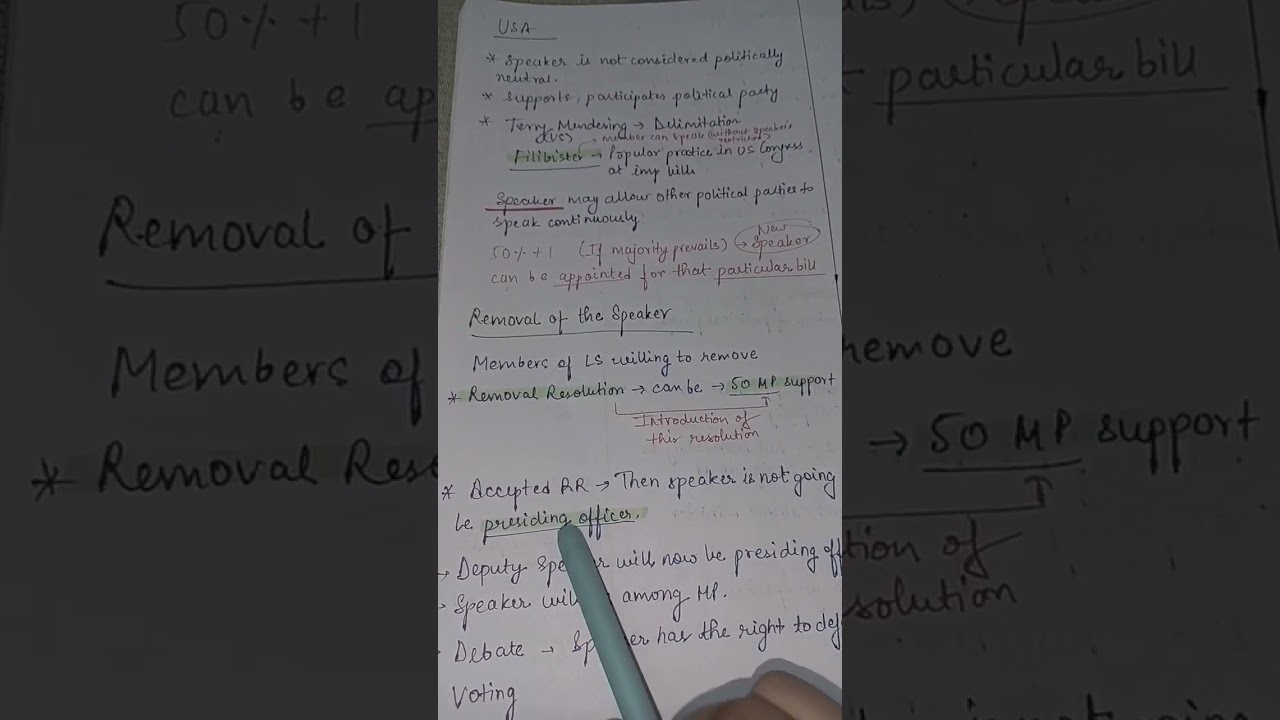 USA
* Speaker is not considered politically
neutral.
* Supports, participates political party
* Terry Mendering → Delimitation
(US) → member can speak (without speaker's
restriction)
Filibister → Popular practice in US Congress
at imp bills
Speaker may allow other political parties to
speak continuously
50%+1 (If majority prevails) → New Speaker
can be appointed for that particular bill
Removal of the Speaker
Members of LS willing to remove
* Removal Resolution → can be → 50 MP support
Introduction of
this resolution
* Accepted RR → Then speaker is not going
be presiding officer.
→ Deputy Spe er will now be presiding off
→ Speaker will among MP.
Debate → Sp er has the right to def
Voting